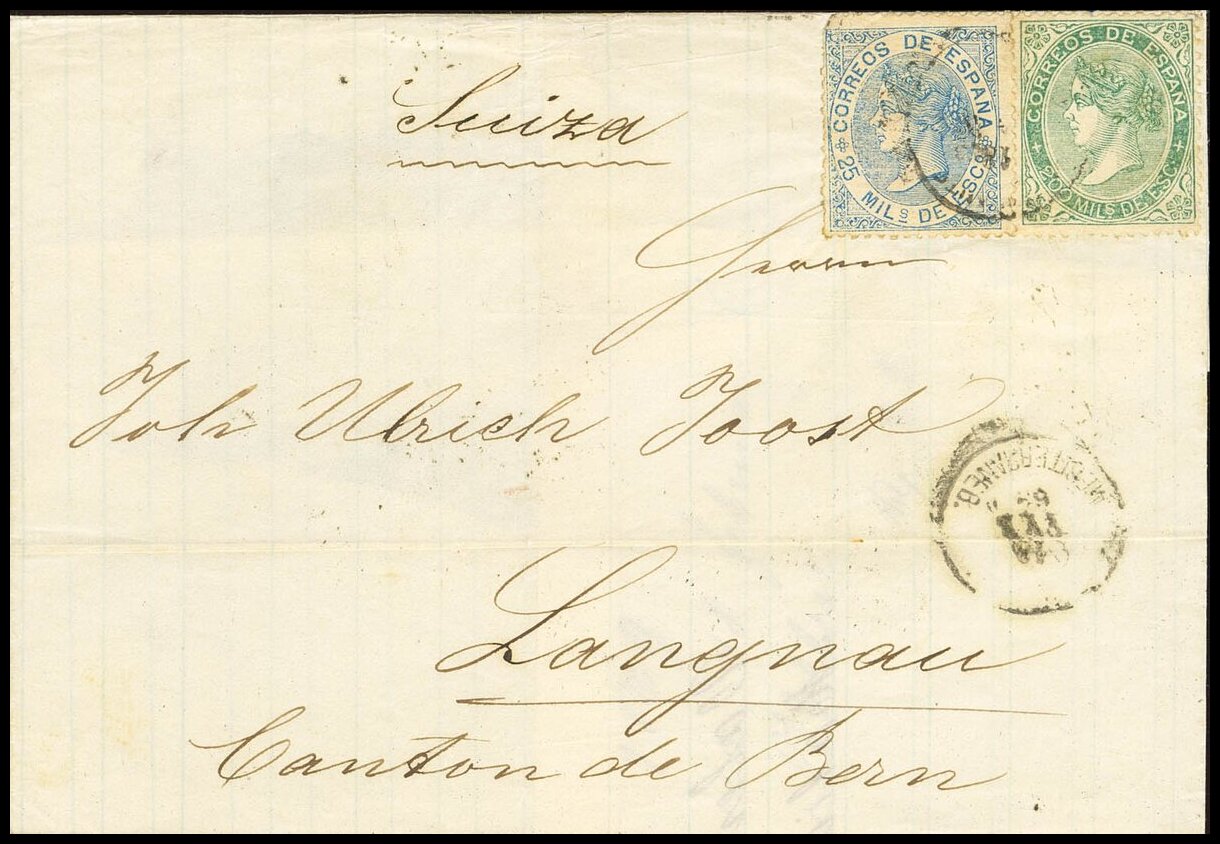 Suiza
CORREOS DE ESPAÑA
25 MILS DE ESCO
CORREOS DE ESPAÑA
200 MILS DE ESCO
Herrn
Joh Ulrich Joost
Langnau
Canton de Bern